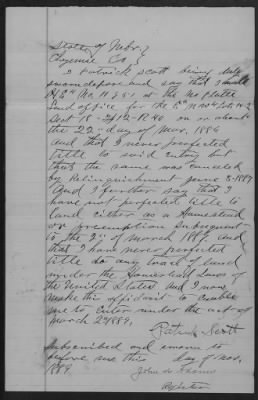 State of Nebr }
Cheyenne Co }
I Patrick Scott being duly
sworn depose and say that I made
H/E No. 11351 at the No Platte
Land office for the E½ NW¼ Lots 1 & 2
Sect 18 - 12 R 40 on or about
the 22 day of Mar. 1886
and that I never perfected
title to said Entry but
that the same was canceled
by Relinquishment June 3-1887
And I further say that I
have not perfected title to
land either as a Homestead
or preemption subsequent
to the 2nd of March 1889 and
that I have never perfected
title to any tract of land
under the Homestead Laws of
the United States and I now
make this affidavit to enable
me to enter under the act of
March 2 1889.
Patrick Scott
Subscribed and sworn to
before me this day of Nov.
1889.
John
Register